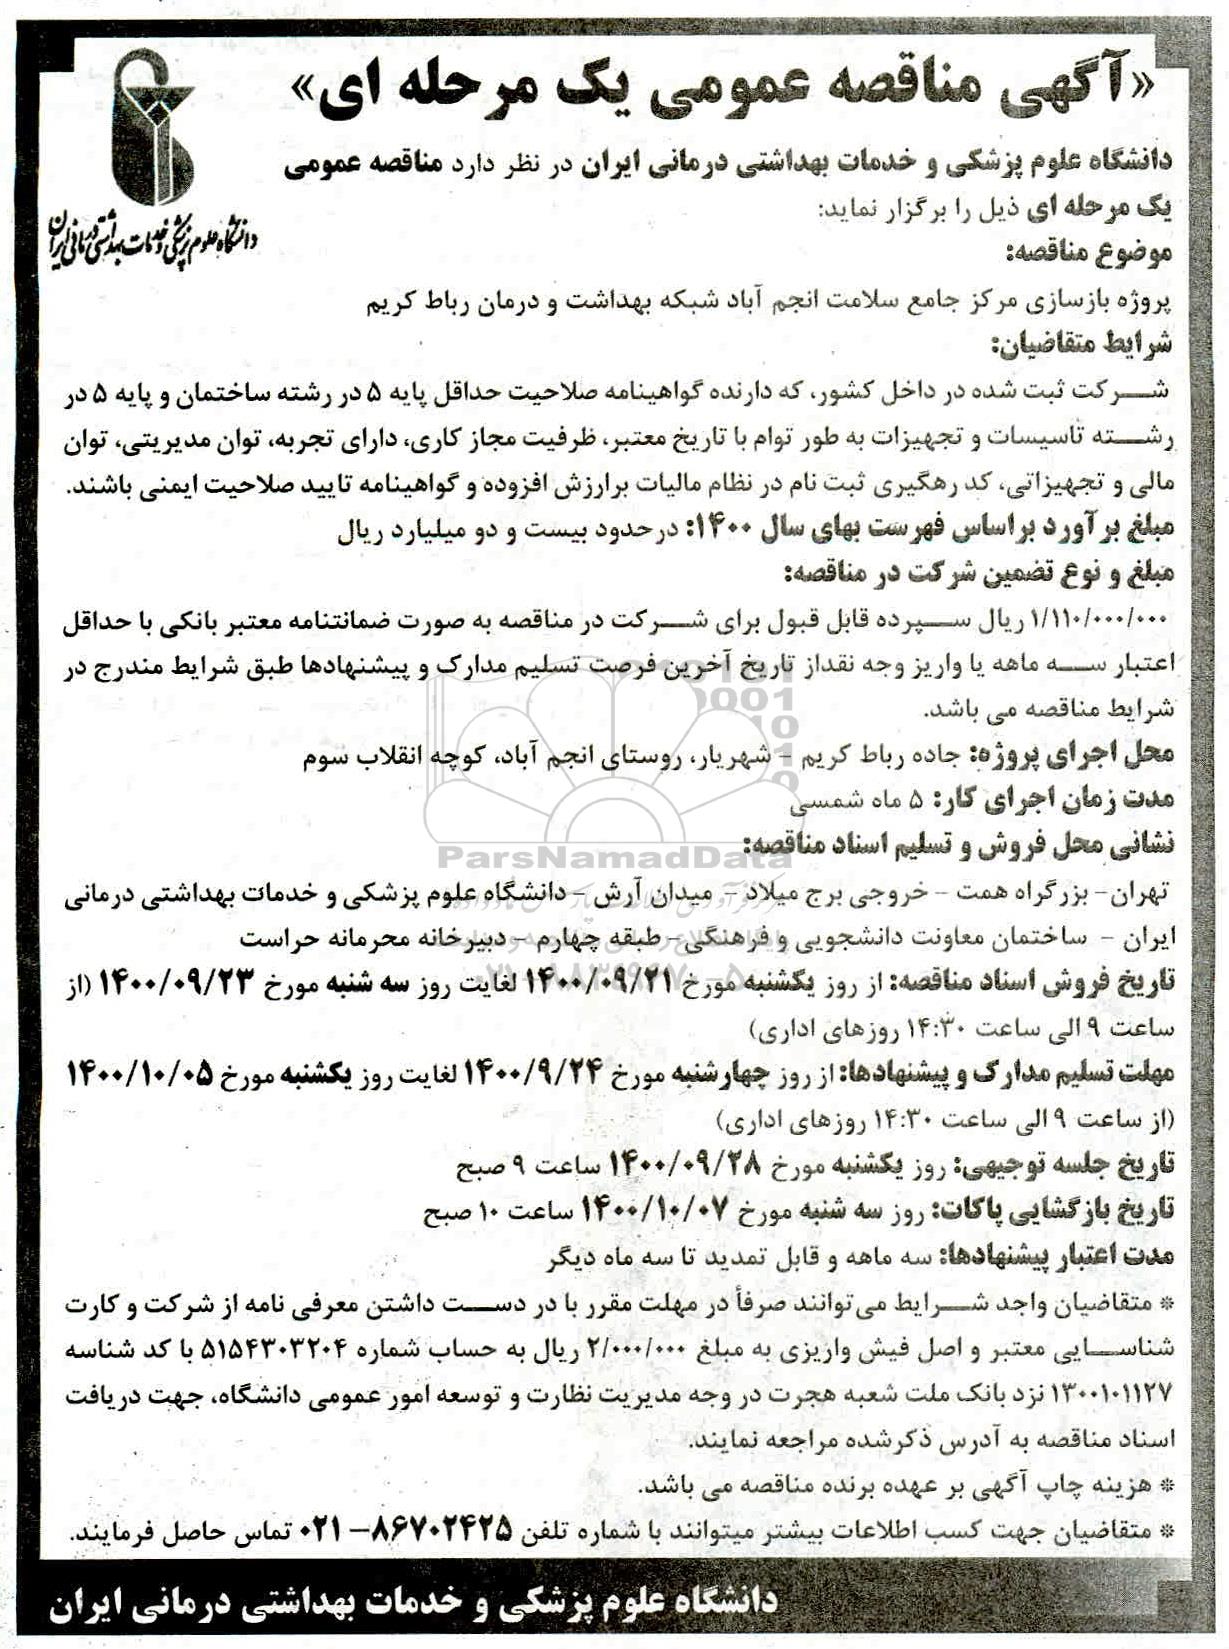 «آگهی مناقصه عمومی یک مرحله ای»
دانشگاه علوم پزشکی و خدمات بهداشتی درمانی ایران
دانشگاه علوم پزشکی و خدمات بهداشتی درمانی ایران در نظر دارد مناقصه عمومی
یک مرحله ای ذیل را برگزار نماید:
موضوع مناقصه:
پروژه بازسازی مرکز جامع سلامت انجم آباد شبکه بهداشت و درمان رباط کریم
شرایط متقاضیان:
شرکت ثبت شده در داخل کشور، که دارنده گواهینامه صلاحیت حداقل پایه ۵ در رشته ساختمان و پایه ۵ در
رشته تاسیسات و تجهیزات به طور توام با تاریخ معتبر، ظرفیت مجاز کاری، دارای تجربه، توان مدیریتی، توان
مالی و تجهیزاتی، کد رهگیری ثبت نام در نظام مالیات برارزش افزوده و گواهینامه تایید صلاحیت ایمنی باشند.
مبلغ برآورد براساس فهرست بهای سال ۱۴۰۰: درحدود بیست و دو میلیارد ریال
مبلغ و نوع تضمین شرکت در مناقصه:
۱/۱۱۰/۰۰۰/۰۰۰ ریال سپرده قابل قبول برای شرکت در مناقصه به صورت ضمانتنامه معتبر بانکی با حداقل
اعتبار سه ماهه یا واریز وجه نقداز تاریخ آخرین فرصت تسلیم مدارک و پیشنهادها طبق شرایط مندرج در
شرایط مناقصه می باشد.
محل اجرای پروژه: جاده رباط کریم - شهریار، روستای انجم آباد، کوچه انقلاب سوم
مدت زمان اجرای کار: ۵ ماه شمسی
نشانی محل فروش و تسلیم اسناد مناقصه:
ParsNamadData
تهران- بزرگراه همت - خروجی برج میلاد - میدان آرش - دانشگاه علوم پزشکی و خدمات بهداشتی درمانی
ایران - ساختمان معاونت دانشجویی و فرهنگی - طبقه چهارم - دبیرخانه محرمانه حراست
تاریخ فروش اسناد مناقصه: از روز یکشنبه مورخ ۱۴۰۰/۰۹/۲۱ لغایت روز سه شنبه مورخ ۱۴۰۰/۰۹/۲۳ (از
ساعت ۹ الی ساعت ۱۴:۳۰ روزهای اداری)
مهلت تسلیم مدارک و پیشنهادها: از روز چهارشنبه مورخ ۱۴۰۰/۹/۲۴ لغایت روز یکشنبه مورخ ۱۴۰۰/۱۰/۰۵
(از ساعت ۹ الی ساعت ۱۴:۳۰ روزهای اداری)
تاریخ جلسه توجیهی: روز یکشنبه مورخ ۱۴۰۰/۰۹/۲۸ ساعت ۹ صبح
تاریخ بازگشایی پاکات: روز سه شنبه مورخ ۱۴۰۰/۱۰/۰۷ ساعت ۱۰ صبح
مدت اعتبار پیشنهادها: سه ماهه و قابل تمدید تا سه ماه دیگر
* متقاضیان واجد شرایط می‌توانند صرفاً در مهلت مقرر با در دست داشتن معرفی نامه از شرکت و کارت
شناسایی معتبر و اصل فیش واریزی به مبلغ ۲/۰۰۰/۰۰۰ ریال به حساب شماره ۵۱۵۴۳۰۳۲۰۴ با کد شناسه
۱۳۰۰۱۰۱۱۲۷ نزد بانک ملت شعبه هجرت در وجه مدیریت نظارت و توسعه امور عمومی دانشگاه، جهت دریافت
اسناد مناقصه به آدرس ذکرشده مراجعه نمایند.
* هزینه چاپ آگهی بر عهده برنده مناقصه می باشد.
* متقاضیان جهت کسب اطلاعات بیشتر میتوانند با شماره تلفن ۸۶۷۰۲۴۲۵-۰۲۱ تماس حاصل فرمایند.
دانشگاه علوم پزشکی و خدمات بهداشتی درمانی ایران